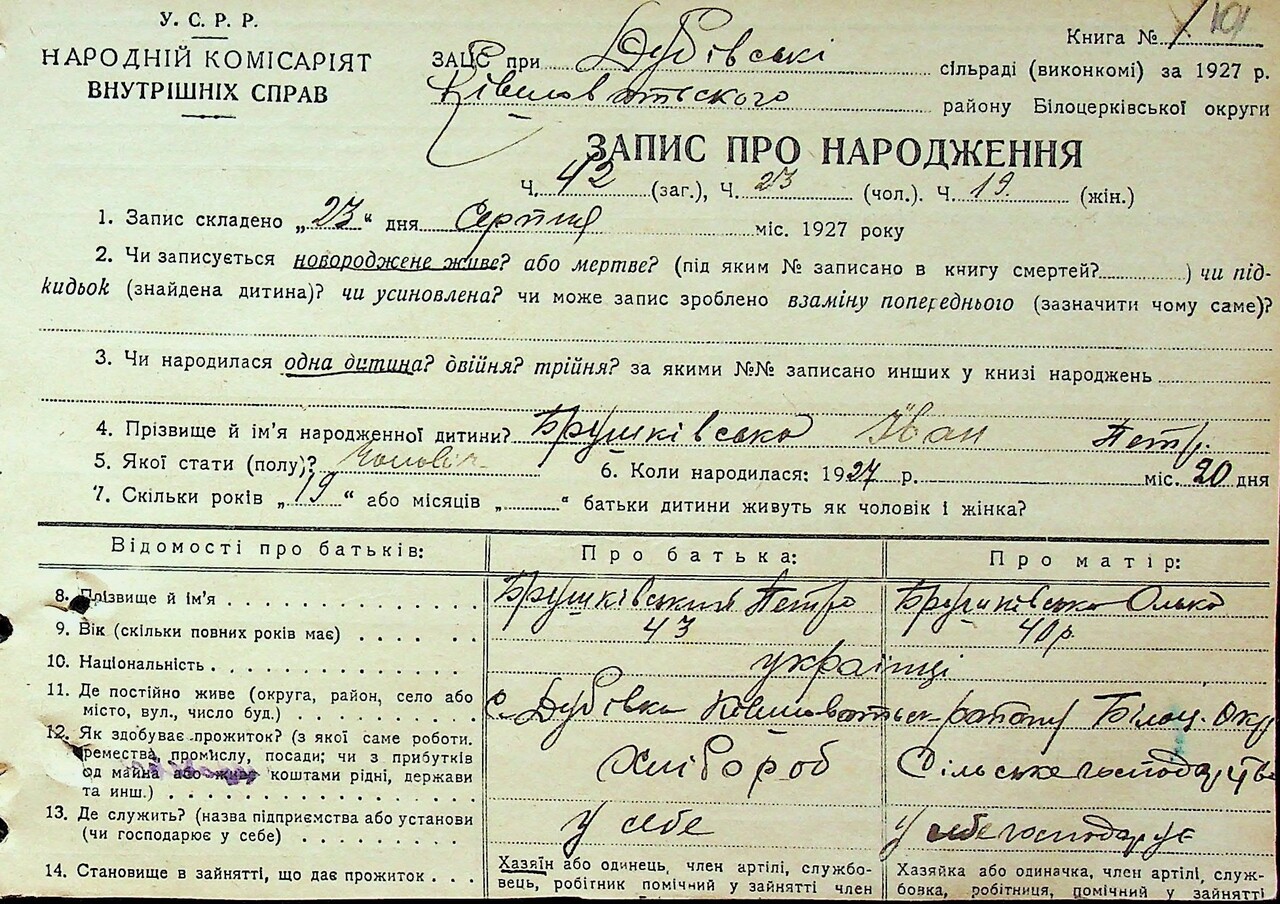 У. С. Р. Р.
НАРОДНІЙ КОМІСАРІЯТ
ВНУТРІШНІХ СПРАВ
Книга № 1 101
ЗАЦС при Дубівські сільраді (виконкомі) за 1927 р.
Ківшоватського району Білоцерківської округи
ЗАПИС ПРО НАРОДЖЕННЯ
Ч. 42 (заг.), Ч. 23 (чол.). Ч. 19. (жін.)
1. Запис складено „23“ дня Серпня міс. 1927 року
2. Чи записується новороджене живе? або мертве? (під яким № записано в книгу смертей? ) чи під-
кидьок (знайдена дитина)? чи усиновлена? чи може запис зроблено взаміну попереднього (зазначити чому саме)?
3. Чи народилася одна дитина? двійня? трійня? за якими №№ записано инших у книзі народжень
4. Прізвище й ім'я народженної дитини? Брушківсько Іван Петр.
5. Якої стати (полу)? чоловіч. 6. Коли народилася: 1927 р. міс. 20 дня
7. Скільки років „19“ або місяців „ “ батьки дитини живуть як чоловік і жінка?
Відомості про батьків: Про батька: Про матір:
8. Прізвище й ім'я Брушківський Петро Брушківська Олька
9. Вік (скільки повних років має) 43 40 р.
10. Національність українці
11. Де постійно живе (округа, район, село або
місто, вул., число буд.) с. Дубівка Ківшоватськ району Білоц. Окр
12. Як здобуває прожиток? (з якої саме роботи.
ремества, промислу, посади; чи з прибутків
од майна або живе коштами рідні, держави
та инш.) Хлібороб Сільське господарство
13. Де служить? (назва підприємства або установи
(чи господарює у себе) у себе у себе господарує
14. Становище в зайнятті, що дає прожиток
Хазяїн або одинець, член артілі, службо-
вець, робітник помічний у зайнятті член
Хазяйка або одиначка, член артілі, служ-
бовка, робітниця, помічний у зайнятті